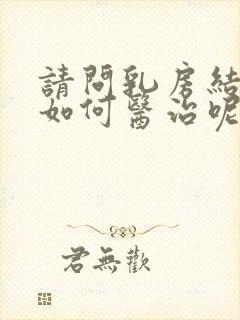 請問乳房結
如何醫治呢
君無歡